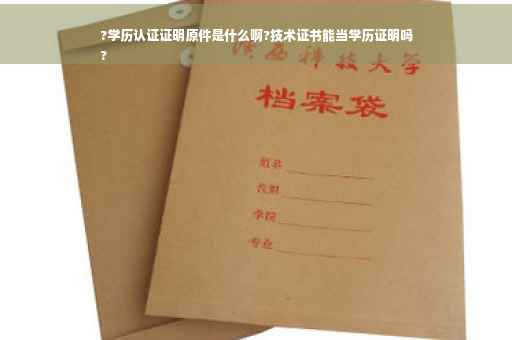 ?学历认证证明原件是什么啊?技术证书能当学历证明吗
?
科技大学
档案袋
学院
专业